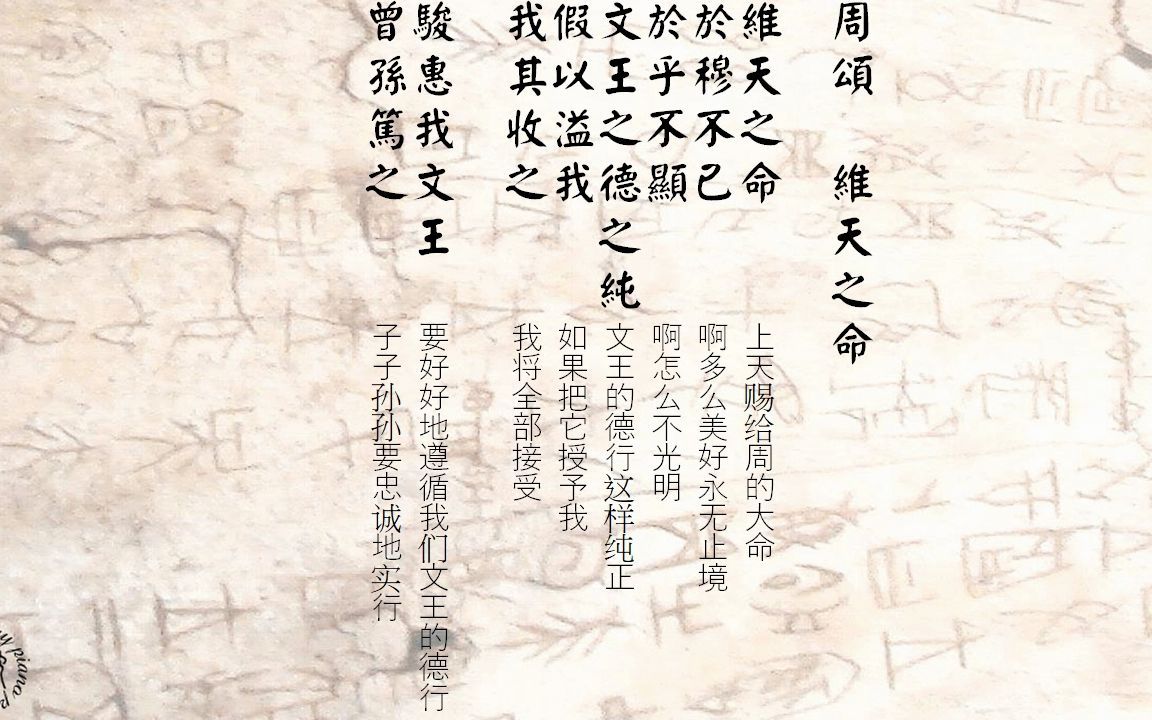 周頌 維天之命
維天之命
上天赐给周的大命
於穆不已
啊多么美好永无止境
於乎不顯
啊怎么不光明
文王之德之純
文王的德行这样纯正
假以溢我
如果把它授予我
我其收之
我将全部接受
駿惠我文王
要好好地遵循我们文王的德行
曾孫篤之
子子孙孙要忠诚地实行
piano